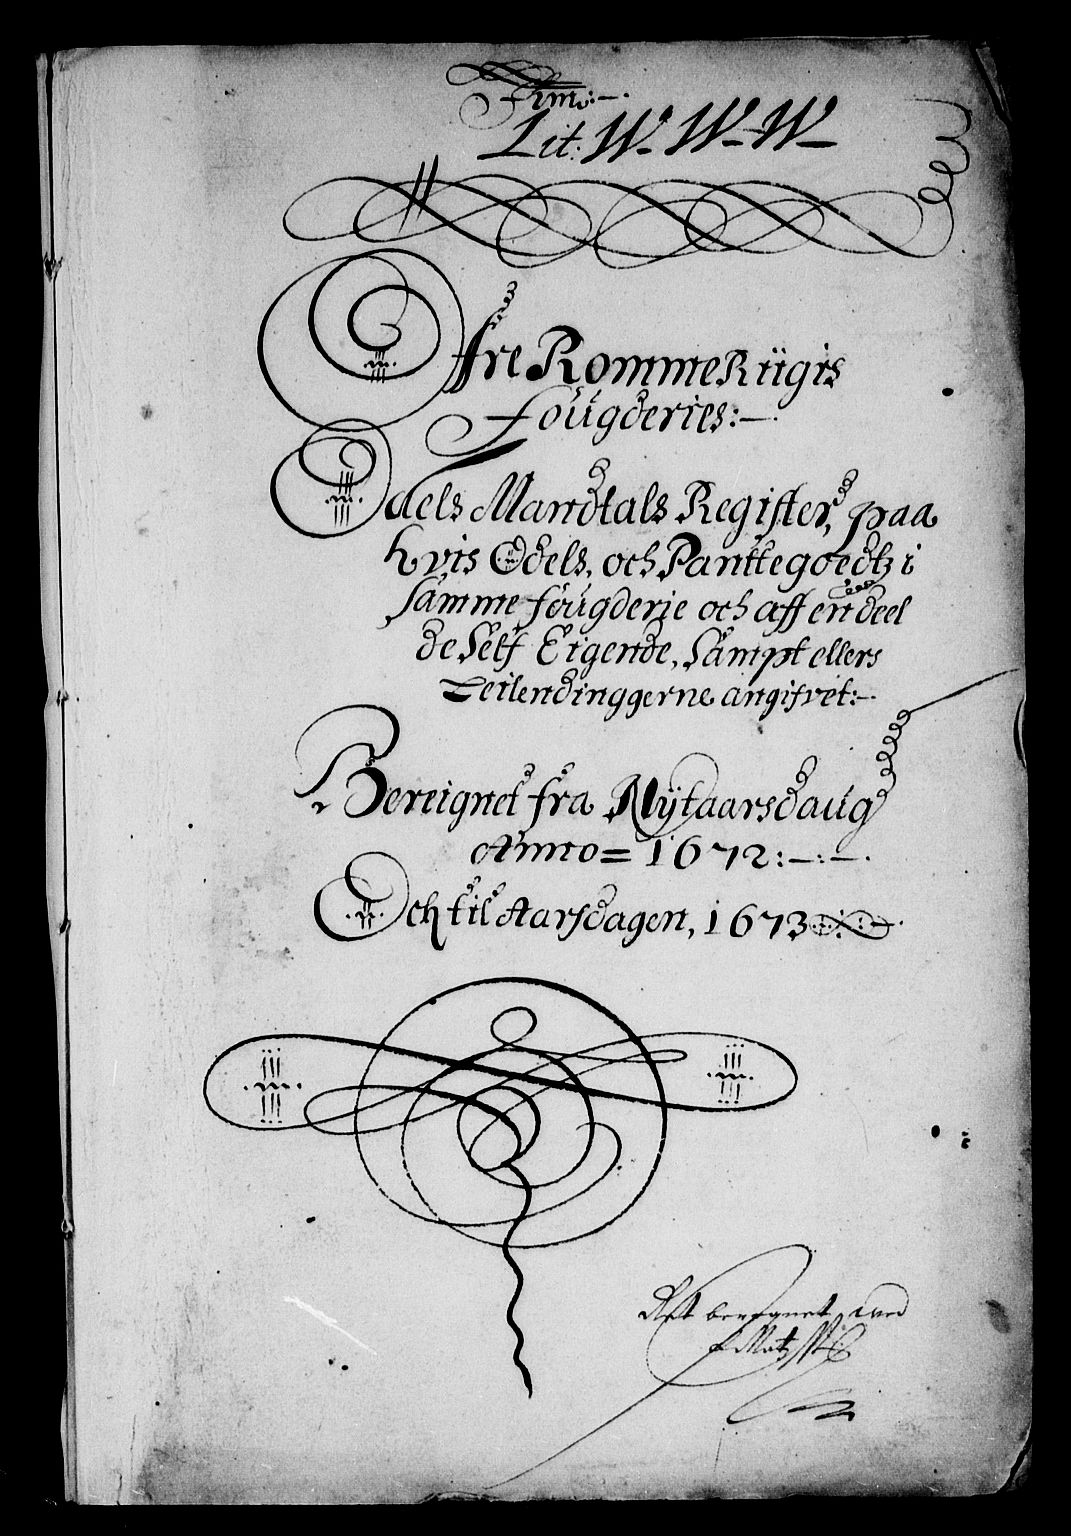 Lit: W. W. W.
Øfre RommeRiigis
fougderies:
Odels Mandtals Register, paa
hvis Odels, och Panttegoedtz i
samme fougderie och aff en deel
de Self Eigende, Sampt ellers
Leilendinggerne angifvet:
Bereignet fra Nytaarsdaug
Anno = 1672:
Och til Aarsdagen, 1673